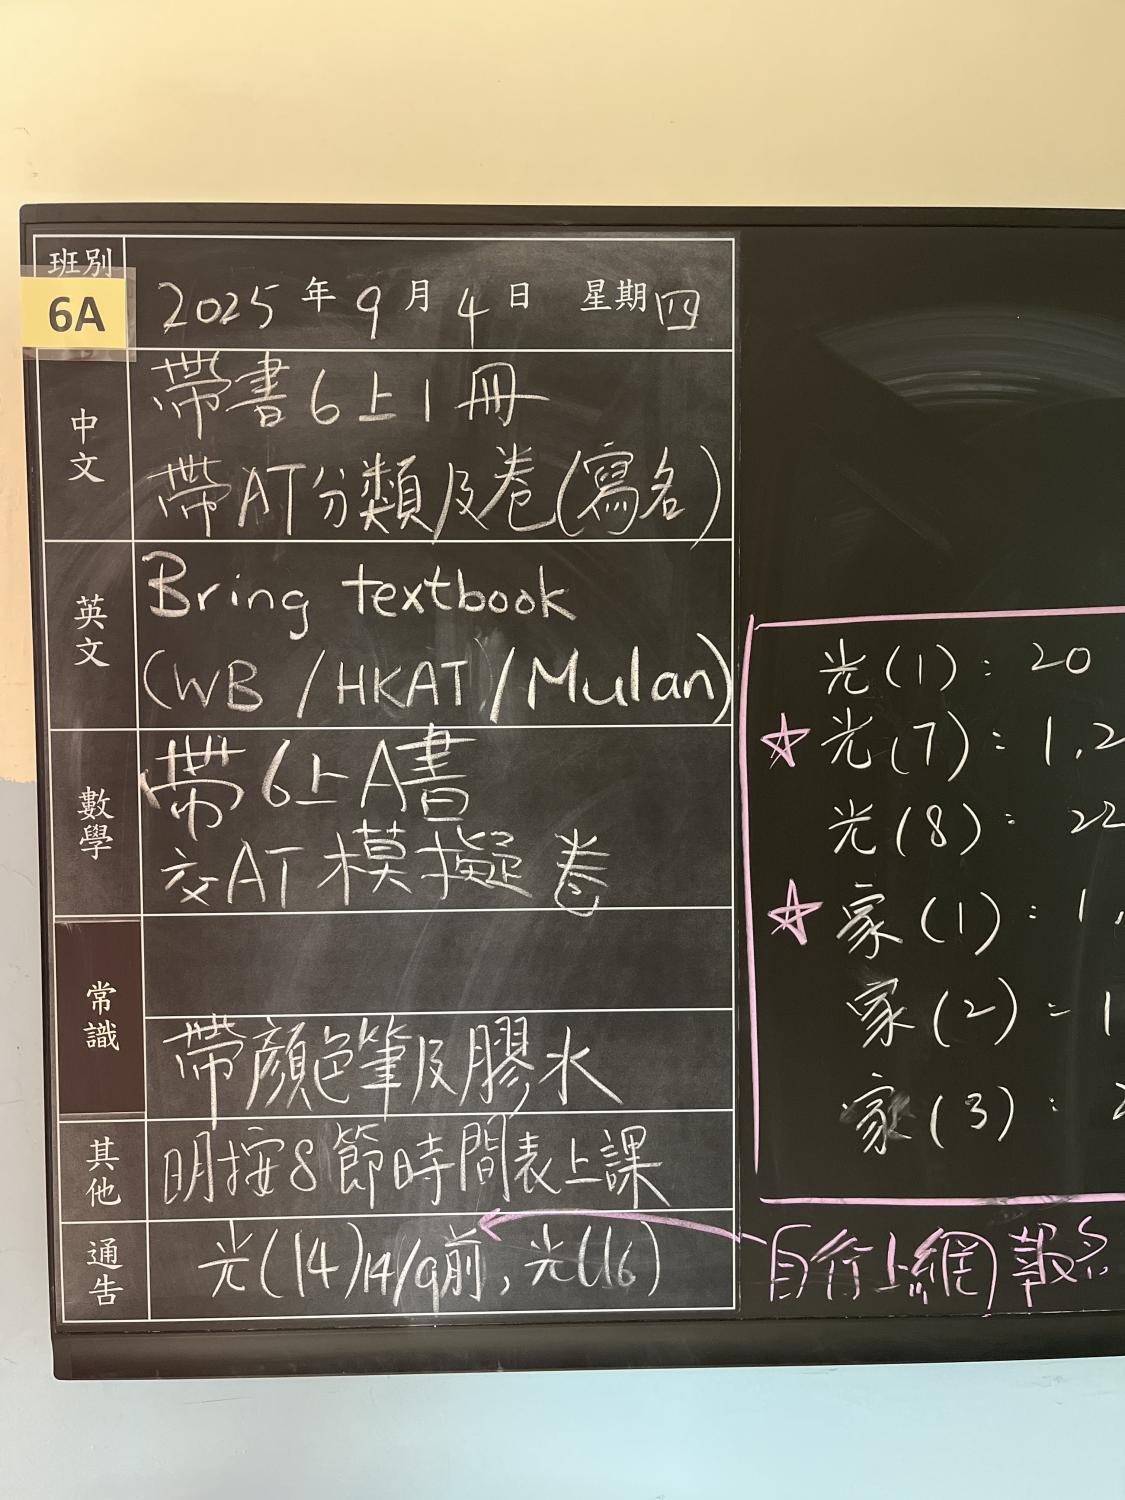 班別
6A
2025 年 9 月 4 日 星期四
中文
帶書6上1冊
帶AT分類及卷(寫名)
英文
Bring textbook
(WB /HKAT /Mulan)
數學
帶6上A書
交AT模擬卷
常識
帶顏色筆及膠水
其他
明按8節時間表上課
通告
光(14)14/9前, 光(16)
光(1): 20
☆光(7): 1,2
光(8): 22
☆家(1): 1,
家(2): 1
家(3):
自行上網報名